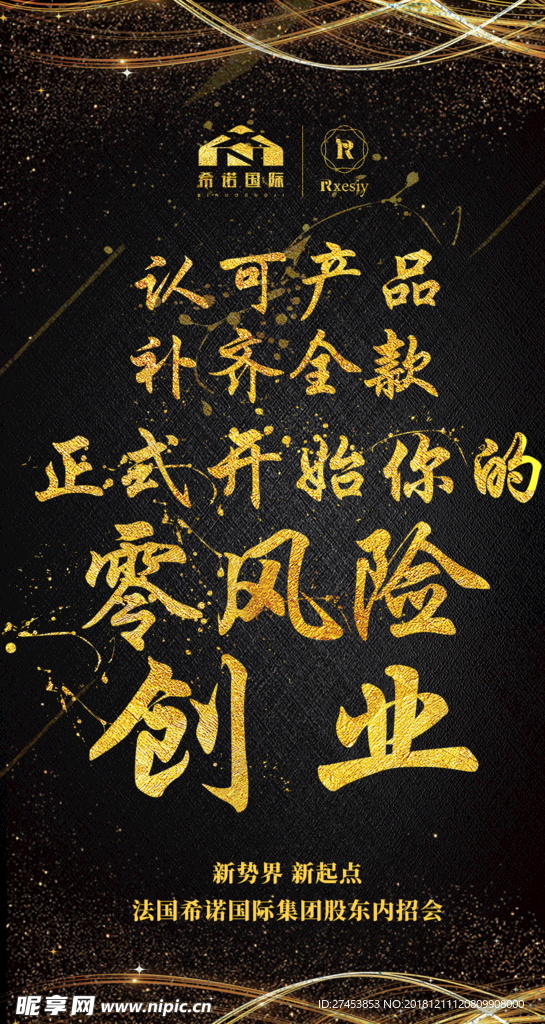 希诺国际
Rxesiy
认可产品
补齐全款
正式开始你的
零风险
创业
新势界 新起点
法国希诺国际集团股东内招会
昵享网 www.nipic.cn
ID:27453853 NO:20181211120809908000